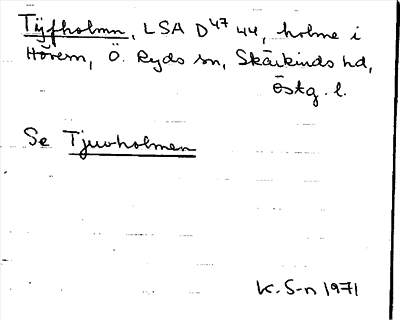 Tÿfholmn, LSA D47 44, holme i
Hövern, Ö. Ryds sn, Skärkinds hd,
Östg. l.
Se Tjuvholmen
K. S-n 1971